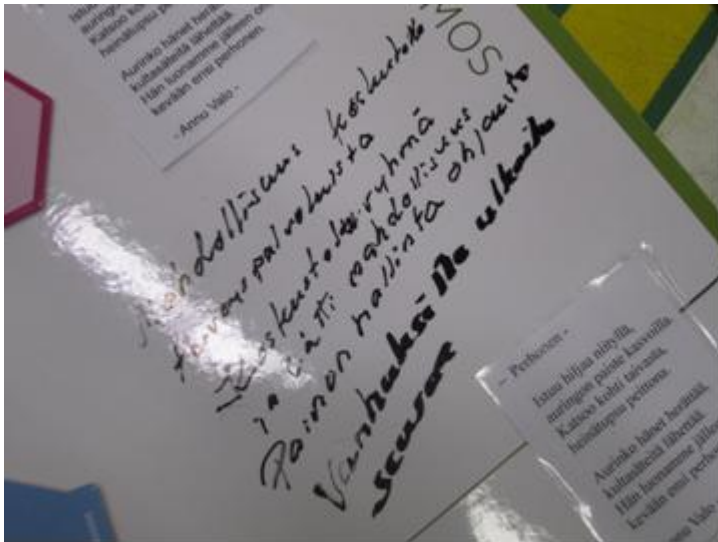 Istuu
Katsoo ko
heinätupsu pe
Aurinko hänet herä
kultasäteitä lähettää.
Hän luonamme jälleen on
kevään ensi perhonen.
- Annu Valo -
MOS
mahdollisuus keskustella
terveyspalveluista
- keskusteluryhmä
ja chätti mahdollisuus
Painon hallinta ohjausta
Vanhuksille ulkoilu
seuraa
- Perhonen -
Istuu hiljaa niityllä,
auringon paiste kasvoilla.
Katsoo kohti taivasta,
heinätupsu peittona.
Aurinko hänet herättää,
kultasäteitä lähettää.
Hän luonamme jälleen
kevään ensi perhonen
Annu Valo -